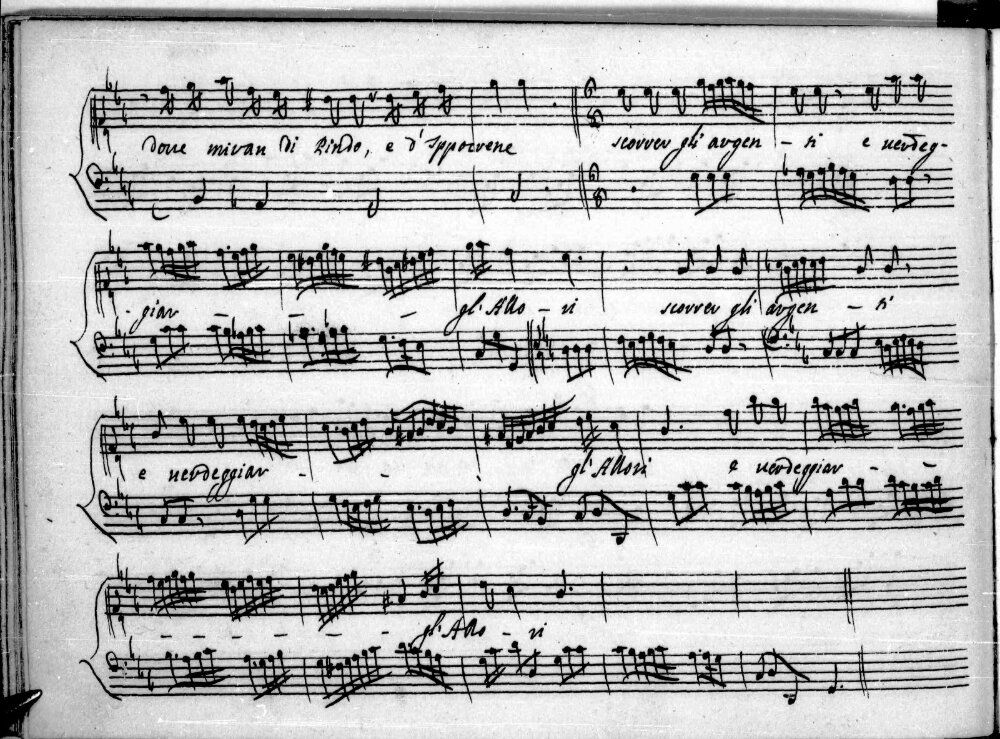 dove miran di Pindo, e d'Ippocrene scorrer gli argen - ti e verdeg-
- giar - - - gli Allo - ri scorrer gli argen - ti
e verdeggiar - - - gli Allori e verdeggiar - -
- - - - - - - gli Allo - ri